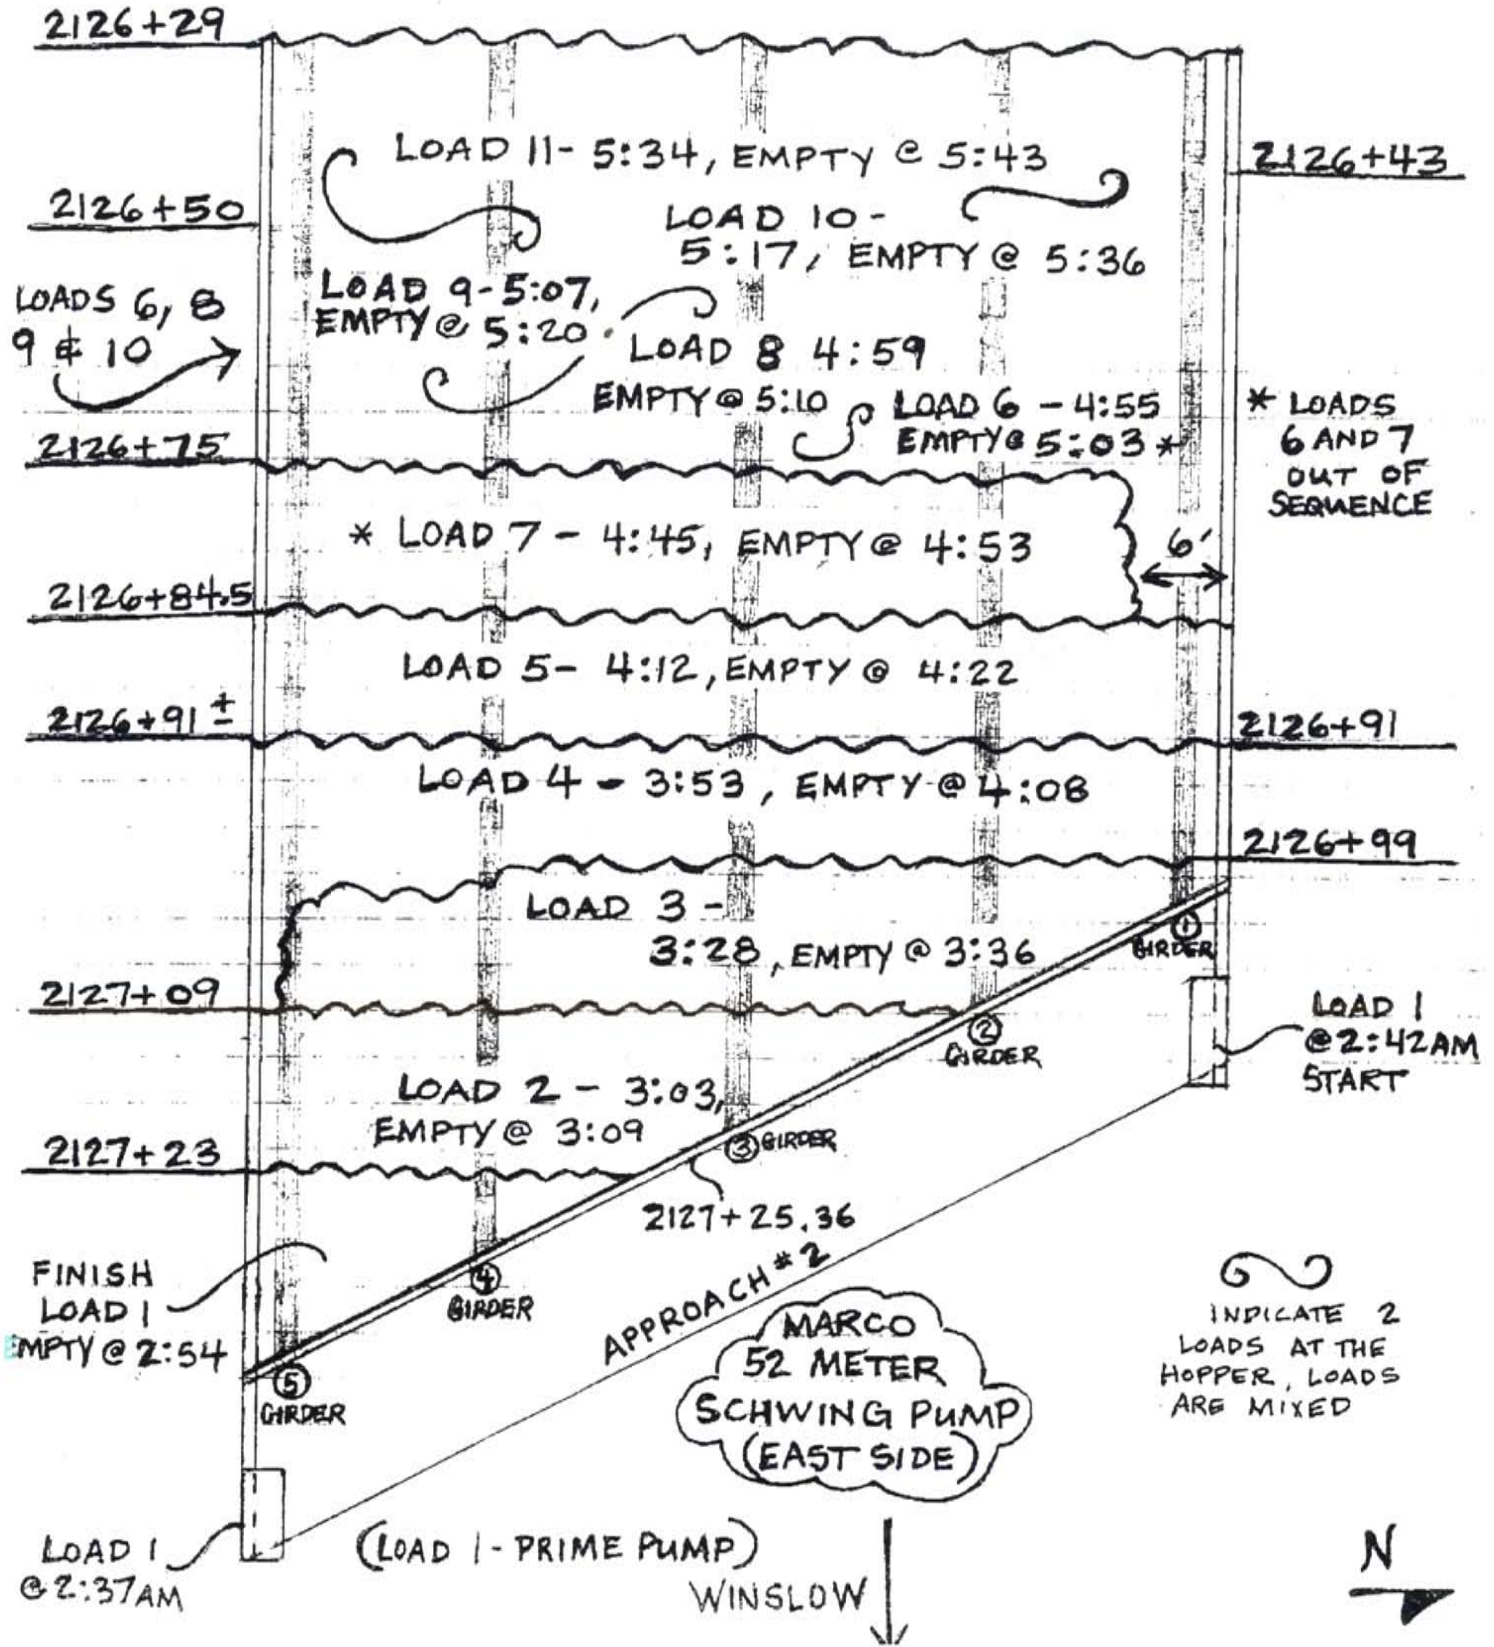 2126+29
LOAD 11- 5:34, EMPTY @ 5:43
2126+43
2126+50
LOAD 10-
5:17, EMPTY @ 5:36
LOADS 6, 8
9 & 10
LOAD 9-5:07,
EMPTY @ 5:20
LOAD 8 4:59
EMPTY @ 5:10
LOAD 6 - 4:55
EMPTY @ 5:03 *
* LOADS
6 AND 7
OUT OF
SEQUENCE
2126+75
* LOAD 7 - 4:45, EMPTY @ 4:53
6'
2126+84.5
LOAD 5- 4:12, EMPTY @ 4:22
2126+91 ±
2126+91
LOAD 4 - 3:53, EMPTY @ 4:08
2126+99
LOAD 3 -
3:28, EMPTY @ 3:36
1
GIRDER
2127+09
2
GIRDER
LOAD 1
@ 2:42AM
START
LOAD 2 - 3:03,
EMPTY @ 3:09
3 GIRDER
2127+23
2127+25.36
FINISH
LOAD 1
EMPTY @ 2:54
4
GIRDER
APPROACH #2
5
GIRDER
MARCO
52 METER
SCHWING PUMP
(EAST SIDE)
INDICATE 2
LOADS AT THE
HOPPER, LOADS
ARE MIXED
LOAD 1
@ 2:37AM
(LOAD 1 - PRIME PUMP)
WINSLOW
N